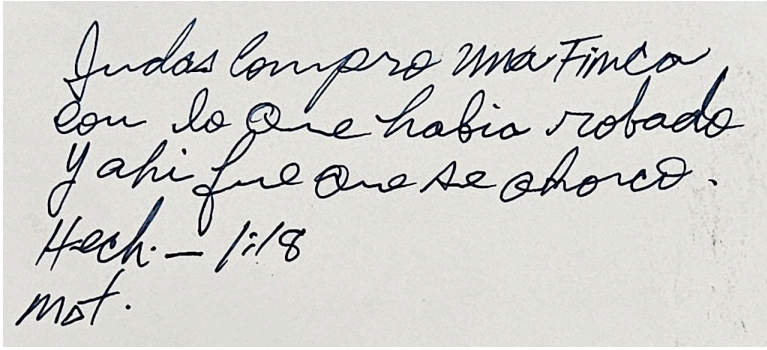 Judas Compro una Finca
con lo que habia robado
y ahi fue que se ahorco.
Hech. — 1:18
Mat.